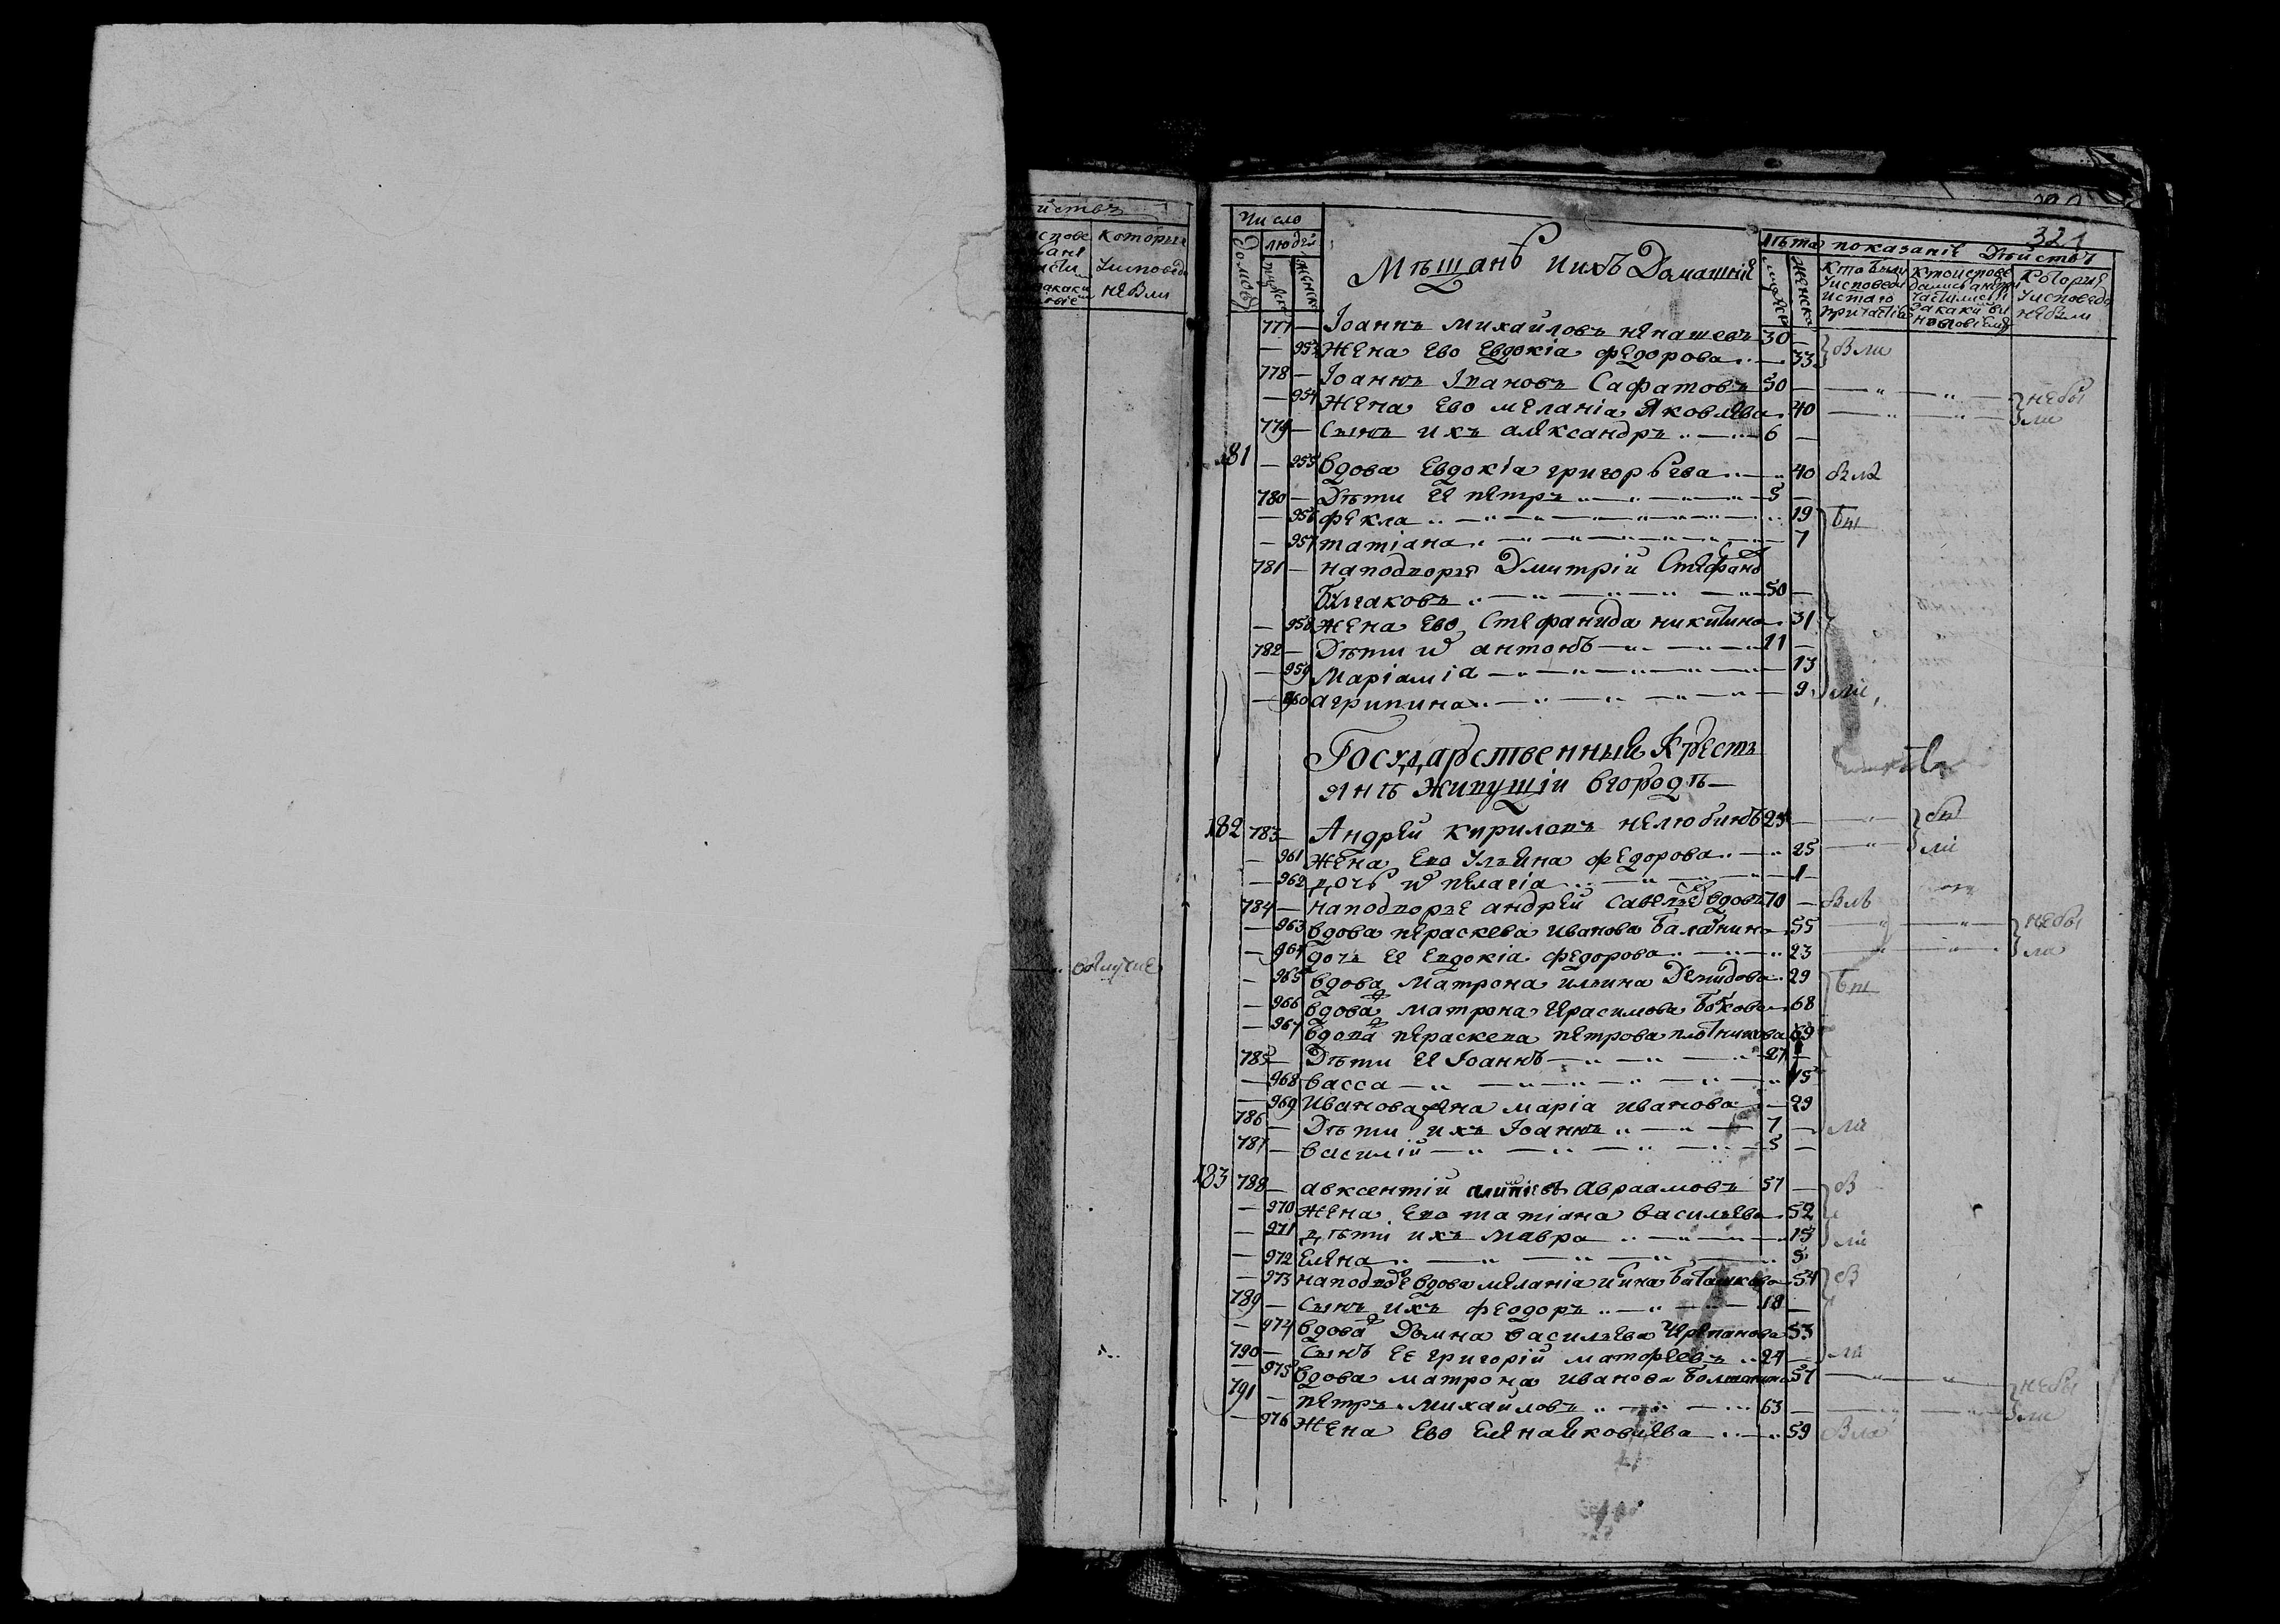 йствъ
которые
Уисповеди
небыли
отлучке
321
Число
Домовъ
людей
мужеска
женска
Мѣщанъ иихъ Домашніе
лѣта
мужеска
женска
показаніе Дѣйствъ
Кто были Уисповеди истаго причастія
Ктоиспове дались анепри частились изакаки ви нословіемъ
Которые Уисповеди небыли
777 — Іоаннъ михаиловъ ненашевъ 30 —
— 953 Жена Ево Евдокіа федорова 33 Были
778 — Іоаннъ Івановъ Сафатовъ 50 —
— 954 Жена Ево меланіа Яковлева 40 небы
779 — Сынъ ихъ александръ 6 — ли
181 — 955 Вдова Евдокіа григорьева 40 была
780 — Дѣти Ее петръ 5 —
— 956 фекла 19 бы
— 957 татіана 7
781 — наподворье Дмитрій Стефанов
Булгаковъ 50 —
— 958 Жена Ево Стефанида никитина 31
782 — Дѣти их антонъ 11 —
— 959 Маріамiа 13
— 960 агрипина 9 ли
Государственный Кресть
янъ живущіи вгородѣ
182 783 — Андрей кириловъ нелюбинъ 25 — бы
— 961 Жена Ево Ульяна федорова 25 ли
— 962 дочь их пелагіа 1
784 — наподворье андрей савельев вдовъ 70 — былъ
— 963 Вдова пераскева иванова Балабнин 55 небы
— 964 дочь Ее Евдокіа федорова 23 ла
— 965 Вдова Матрона ильина Демидова 29 бы
— 966 Вдова матрона Герасимова Бокова 68
— 967 Вдова пераскева петрова плотникова 69
785 — Дѣти Ее Іоаннъ 27 —
— 968 васса 15
— 969 Иванова жена маріа иванова 29
786 — Дѣти ихъ Іоаннъ 7 — ли
787 — василій 5 —
183 788 — авксентій Авраамовъ 57 — Б
— 970 Жена Ево татіана васильева 52
— 971 дѣти ихъ мавра 15 ли
— 972 Елена 5
— 973 наподворье вдова меланіа Баташкова 54 Б
789 — Сынъ ихъ феодоръ 18 —
— 974 Вдова Домна васильева Черепанова 53
790 — Сынъ Ее григорій матфеевъ 24 — ли
— 975 Вдова матрона иванова 57 небы
791 — петръ михаиловъ 63 — ли
— 976 Жена Ево Елена яковлева 59 Была